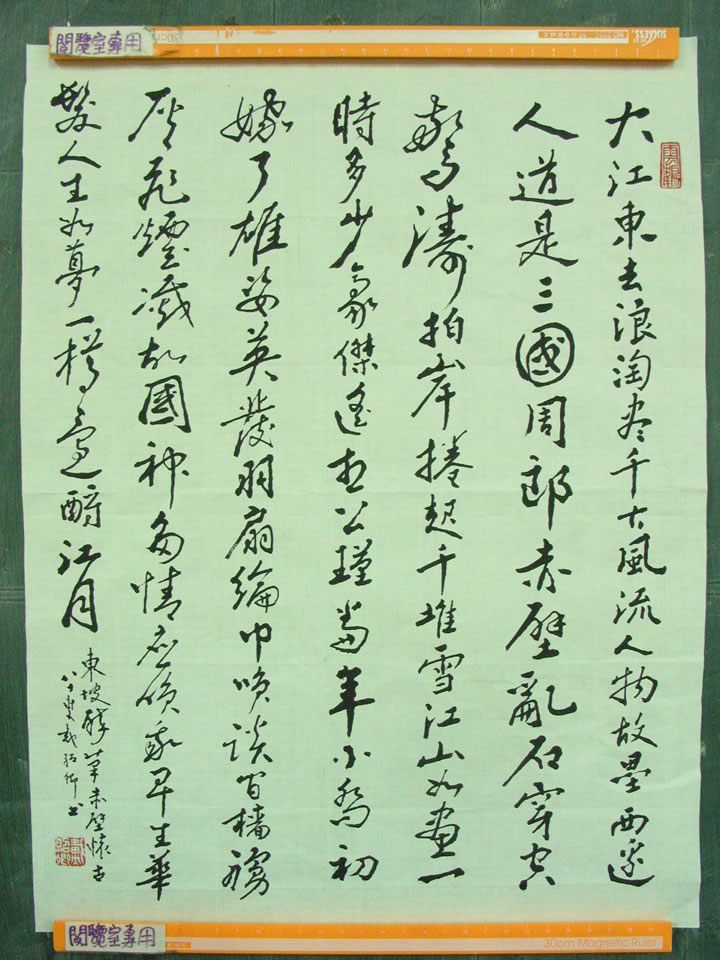 閱覽室專用
大江東去浪淘盡千古風流人物故壘西邊
人道是三國周郎赤壁亂石穿空
驚濤拍岸捲起千堆雪江山如畫一
時多少豪傑遙想公瑾當年小喬初
嫁了雄姿英發羽扇綸巾咲談間檣櫓
灰飛煙滅故國神多情應咲我早生華
髮人生如夢一樽還酹江月
東坡赤壁懷古
書
閱覽室專用
30cm Magnetic Ruler